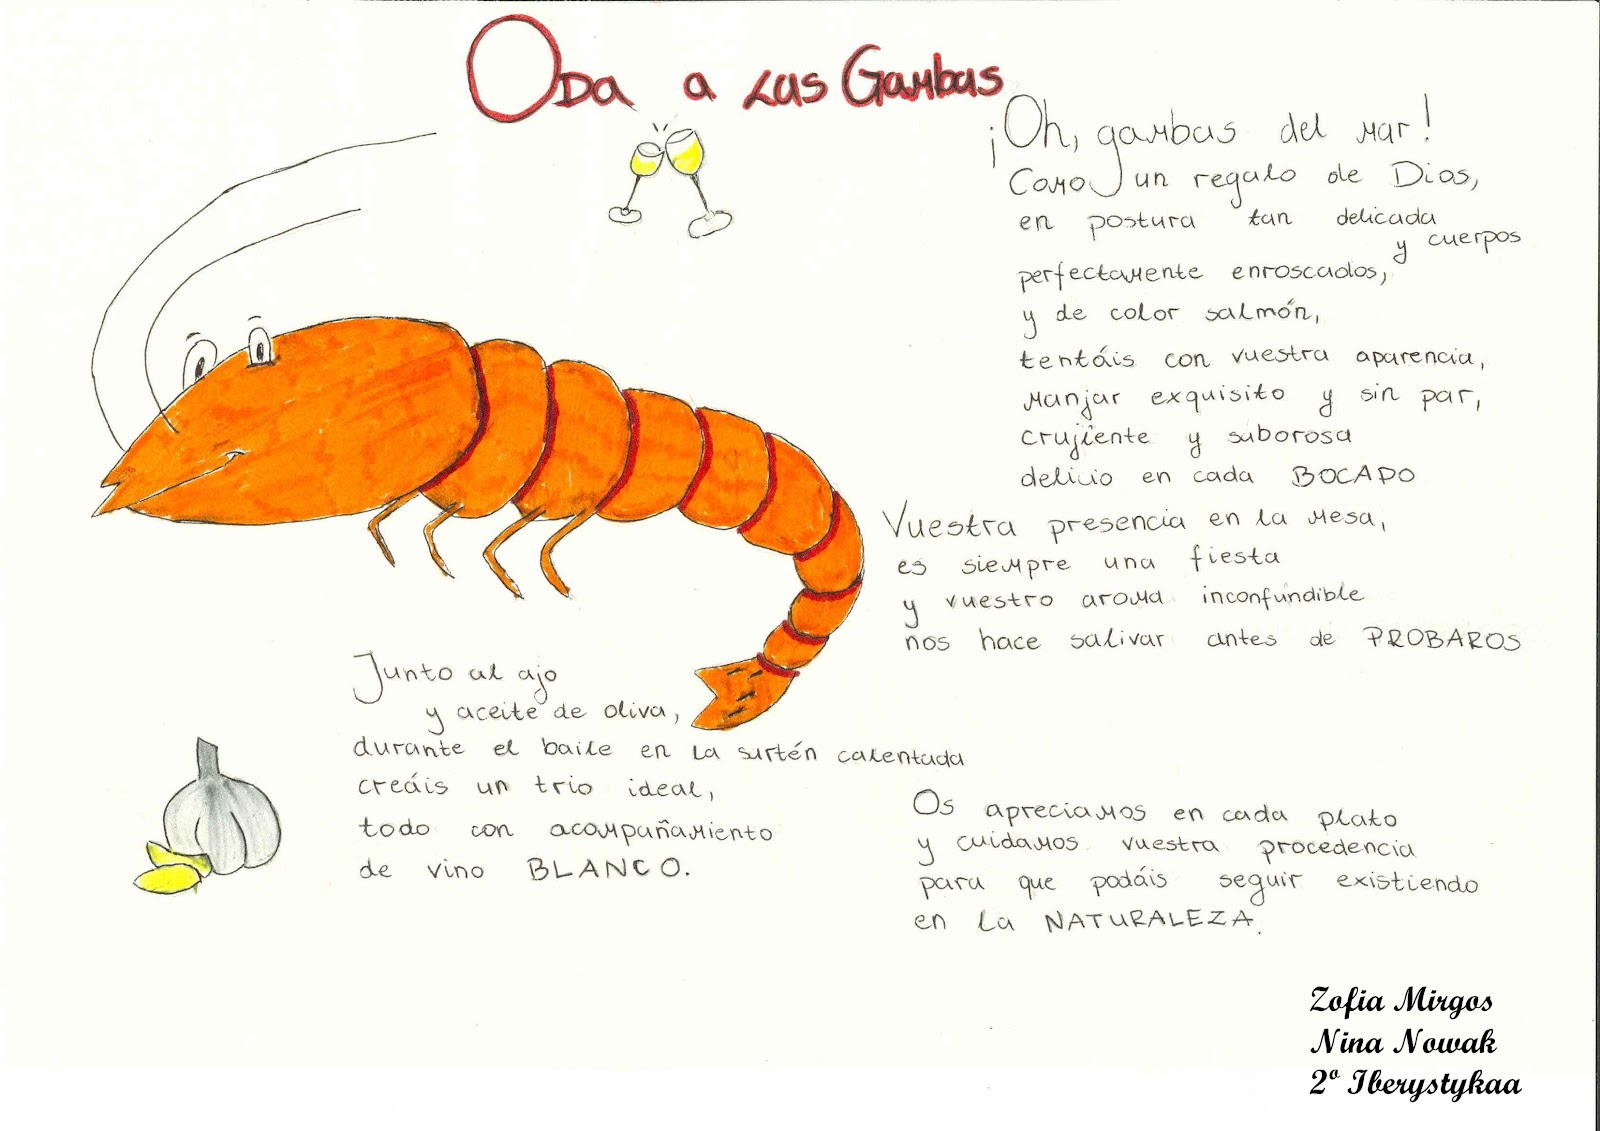 Oda a las Gambas
¡Oh, gambas del mar!
Como un regalo de Dios,
en postura tan delicada
y cuerpos
perfectamente enroscados,
y de color salmón,
tentáis con vuestra aparencia,
manjar exquisito y sin par,
crujiente y saborosa
delicio en cada BOCADO
Vuestra presencia en la mesa,
es siempre una fiesta
y vuestro aroma inconfundible
nos hace salivar antes de PROBAROS
Junto al ajo
y aceite de oliva,
durante el baile en la surtén calentada
creáis un trio ideal,
todo con acompañamiento
de vino BLANCO.
Os apreciamos en cada plato
y cuidamos vuestra procedencia
para que podáis seguir existiendo
en la NATURALEZA.
Zofia Mirgos
Nina Nowak
2º Iberystykaa